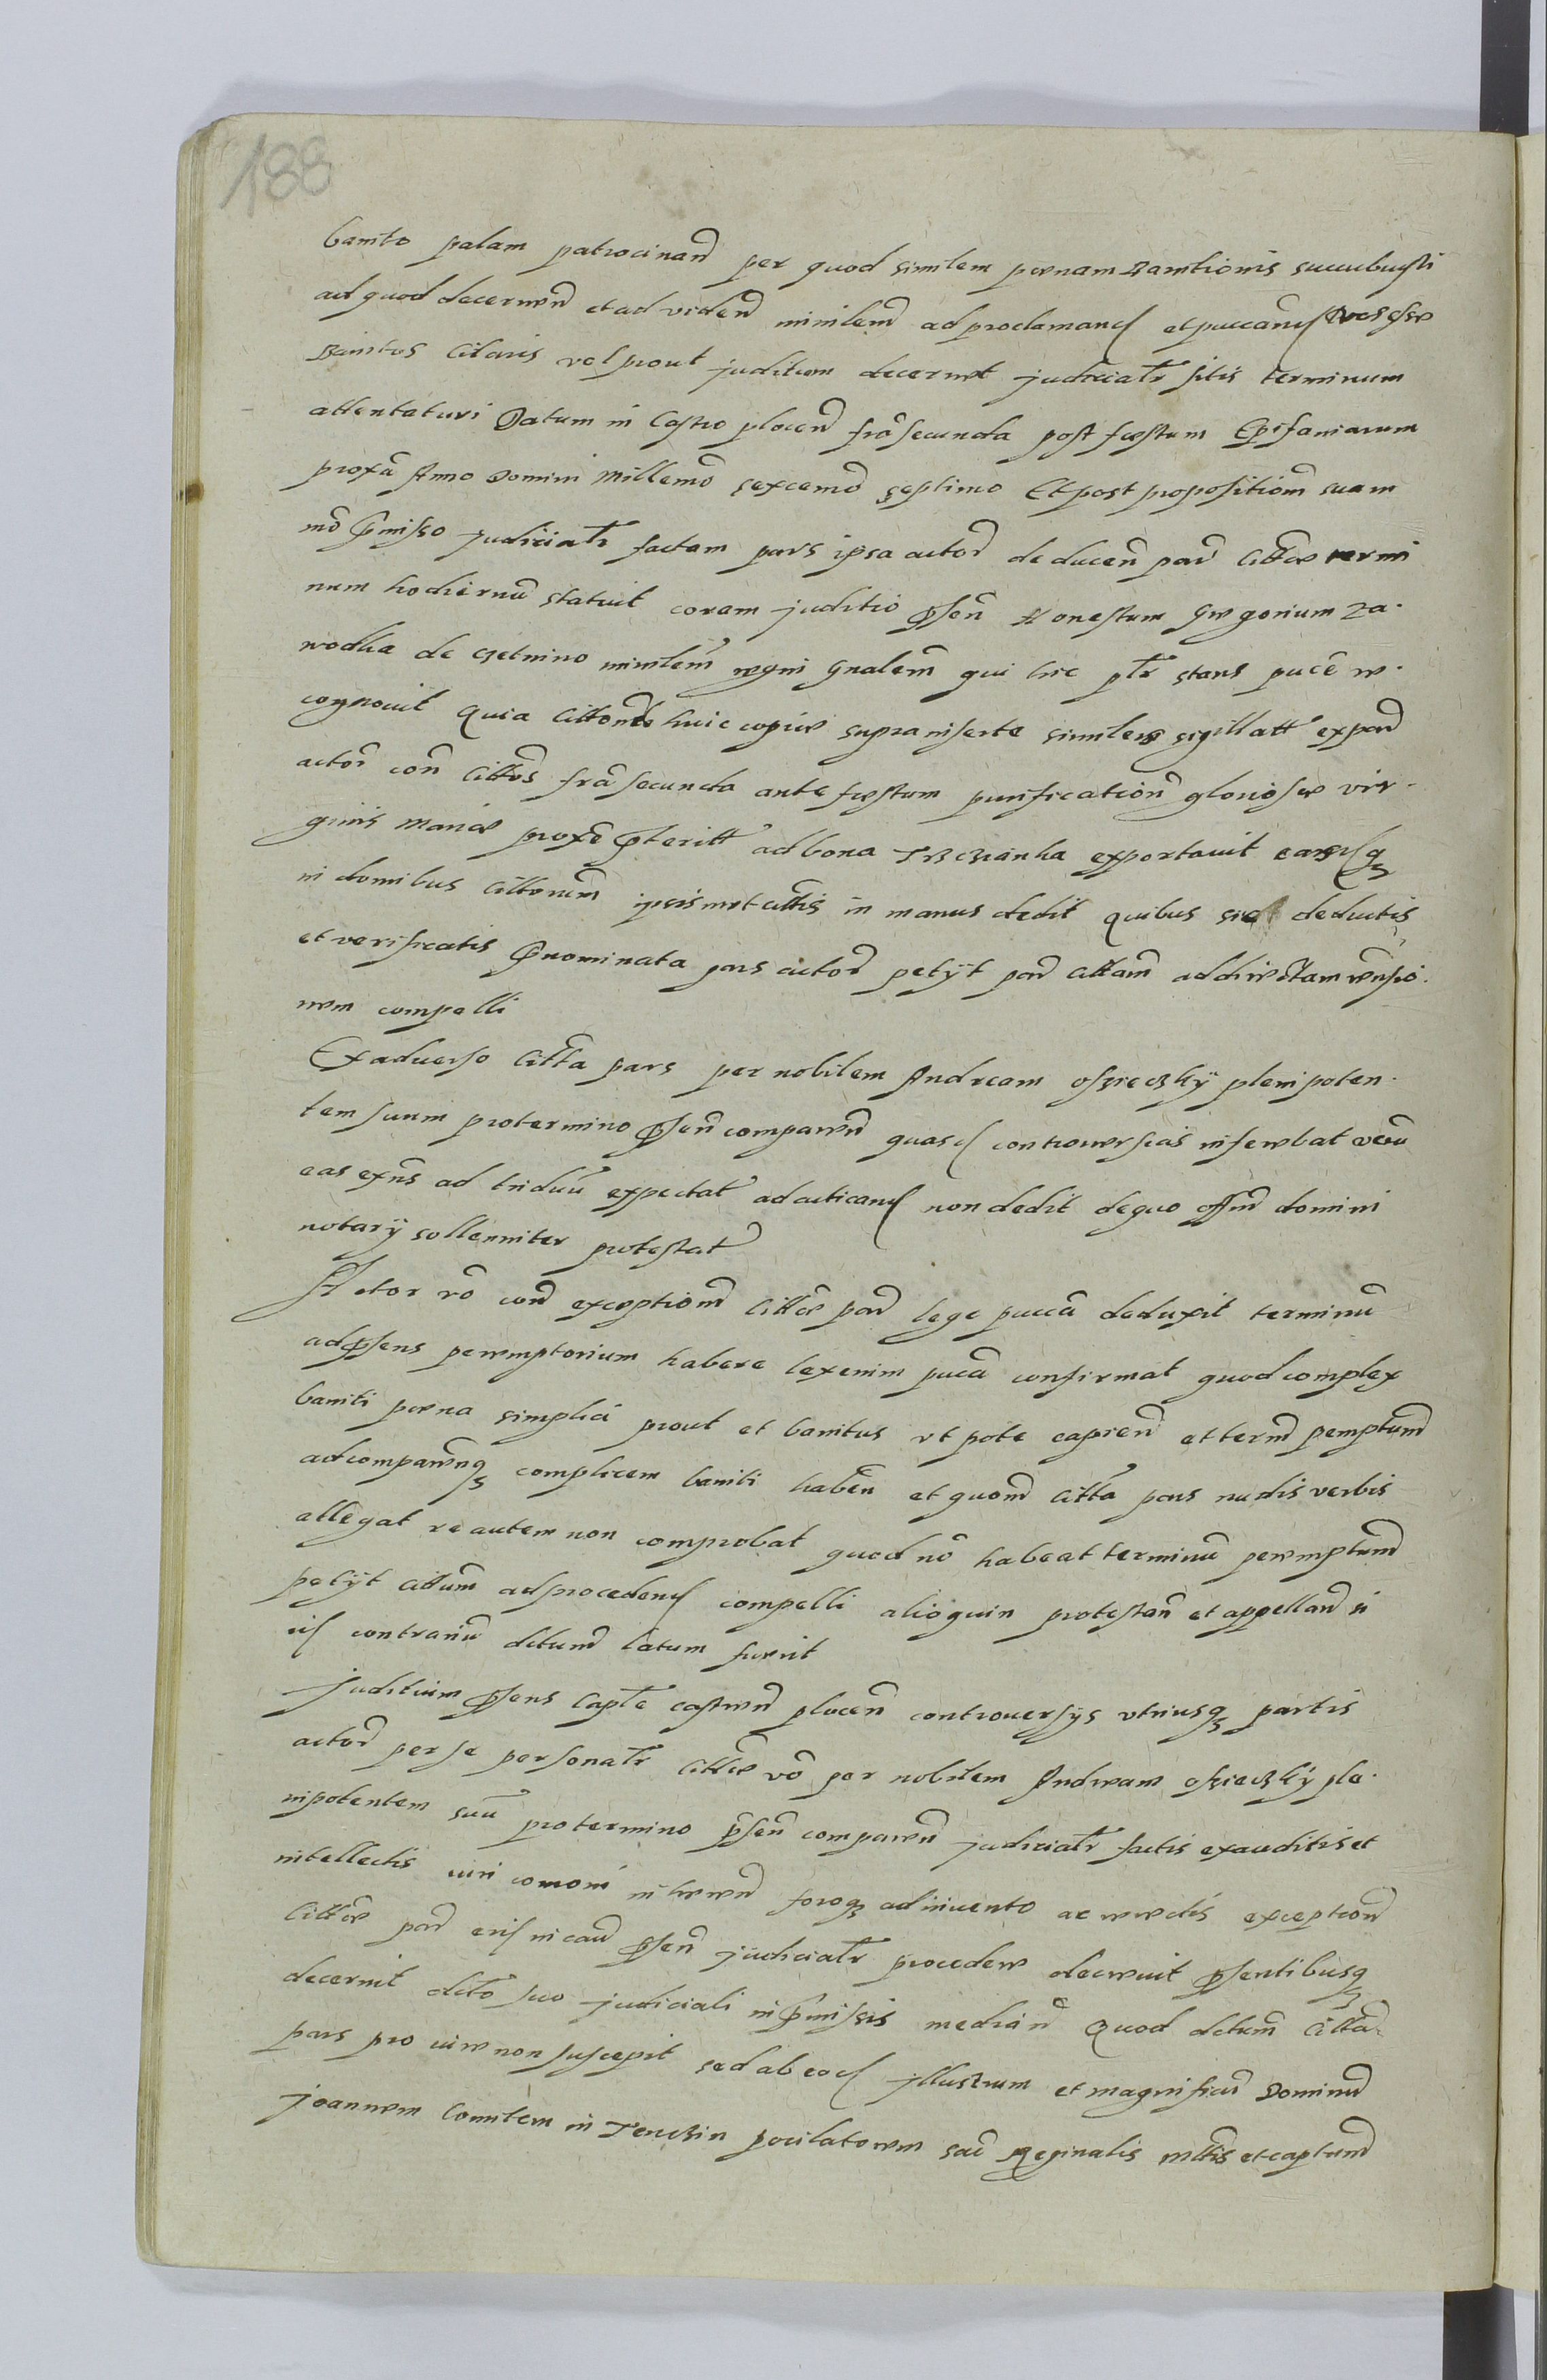 188
banito palam patrocinand per quod similem poenam Banitionis succubuisti
ad quod decernend et ad vidend ministend ad proclamand et puccand vos esse
Banitos Citaris vel prout juditium decernet judicialr sitis terminum
attentaturi Datum in Castro plocen fra secunda post festum Epifaniarum
proxa Anno Domini Millemo sexcemo septimo Et post propositiom suam
mo pmisso judicialr factam pars ipsa actor deducen par Citte termi
num hodiernu statuit coram juditio psen Honestum Gregorium Za
wodka de Czetnino ministem regni gnalem qui hic ptr stans puce re
cognovit Quia Cittones huic copie supra inserte similes sigillatt ex par
actor con Cittos fra secunda ante festum purification gloriose vir
ginis Mariae proxe pteritt ad bona Trzcianka exportavit easq
in domibus Cittorum ipsismet cittis in manus dedit Quibus sic deductis
et verificatis pnominata pars actor petijt par cittam ad directam rensio
nem compelli
Ex adverso Citta pars per nobilem Andream Osieczky plenipoten
tem suum pro termino psen comparen quasd controversias inserebat veru
eas exns ad triduu expectat adacticand non dedit de quo offm domini
notarij sollenniter protestat
Actor vo con exceptiom Citte par lege pucca deduxit terminu
ad psens peremptorium habere lex enim puca confirmat quod complex
baniti poena simplici prout et banitus utpote capien et term pemptum
ad comparenq complicem baniti haben et quom Citta pars nudis verbis
allegat re autem non comprobat quod no habeat terminu peremptum
petijt cittum ad procedend compelli alioquin protestan et appellan si
id contrariu dectum latum fuerit
Juditium psens Capte castren plocen controversijs utriusq partis
actor per se personalr Citte vo per nobilem Andream Osieczky ple
nipotentem suu pro termino psen comparen judicialr factis exauditis et
intellectis iuri comoni in terren foroq adinvento ac reiectis exception
Citte par eisd in cau psen judicialr procedere decrevit psentibusq
decernit dcto suo judiciali in pmissis median Quod dctum Citta
pars pro iure non suscepit sed ab eod Illustrem et magnificu Dominu
Joannem Comitem in Tenczin pocilatorem sac Reginalis Mttis et captum